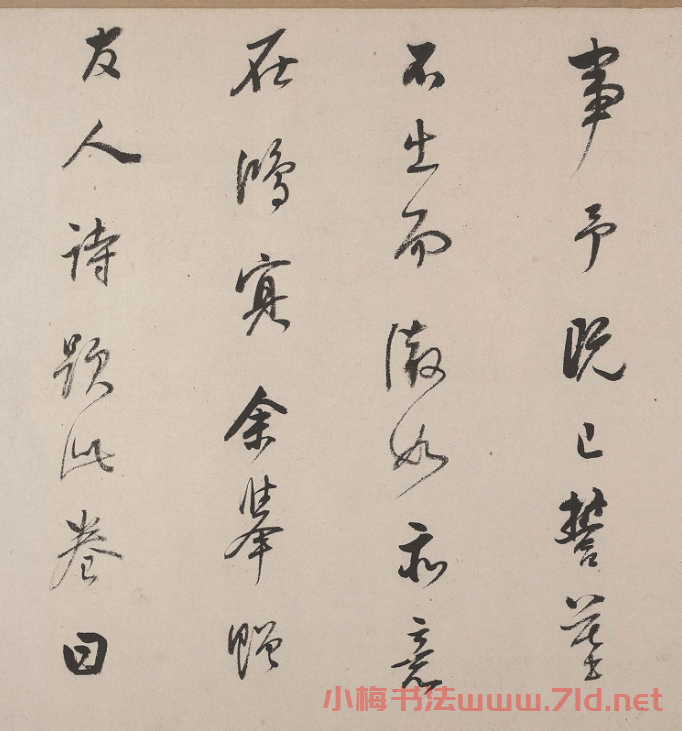 事予既已誓墓
不出而澈如亦意
在鴻冥余舉贈
友人詩題此卷曰
小梅书法www.7ld.net